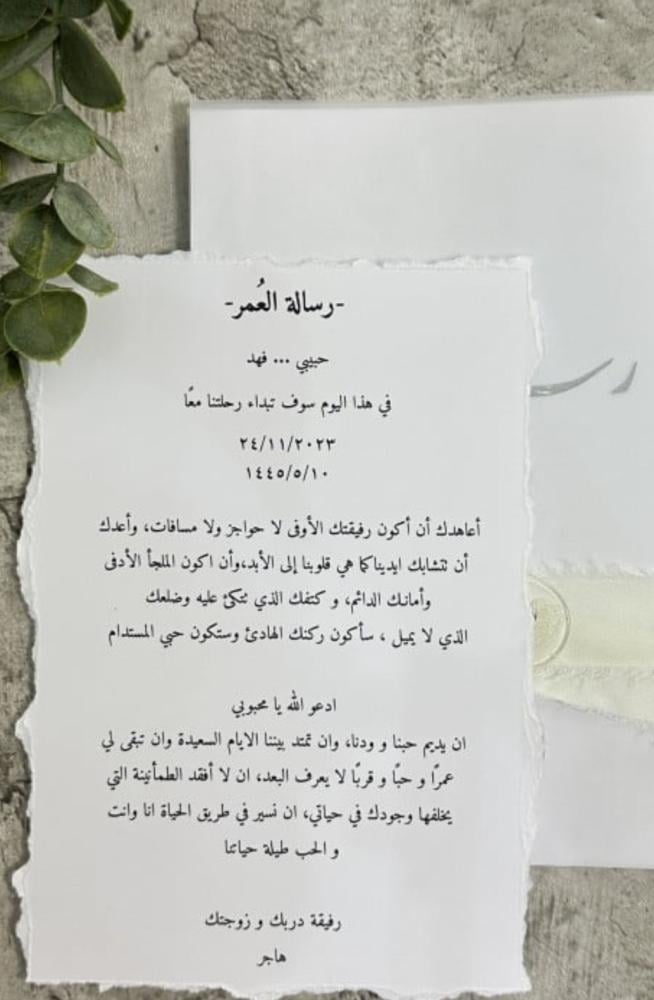 -رسالة العُمر-
حبيبي ... فهد
في هذا اليوم سوف تبداء رحلتنا معًا
٢٤/١١/٢٠٢٣
١٤٤٥/٥/١٠
أعاهدك أن أكون رفيقتك الأوفى لا حواجز ولا مسافات، وأعدك
أن تتشابك ايديناكما هي قلوبنا إلى الأبد،وأن اكون الملجأ الأدفى
وأمانك الدائم، و كتفك الذي تتكئ عليه وضلعك
الذي لا يميل ، سأكون ركنك الهادئ وستكون حبي المستدام
ادعو الله يا محبوبي
ان يديم حبنا و ودنا، وان تمتد بيننا الايام السعيدة وان تبقى لي
عمرًا و حبًا و قربًا لا يعرف البعد، ان لا أفقد الطمأنينة التي
يخلفها وجودك في حياتي، ان نسير في طريق الحياة انا وانت
و الحب طيلة حياتنا
رفيقة دربك و زوجتك
هاجر